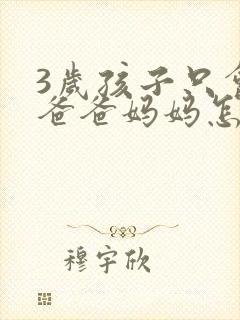 3歲孩子只會
爸爸妈妈怎
穆宇欣